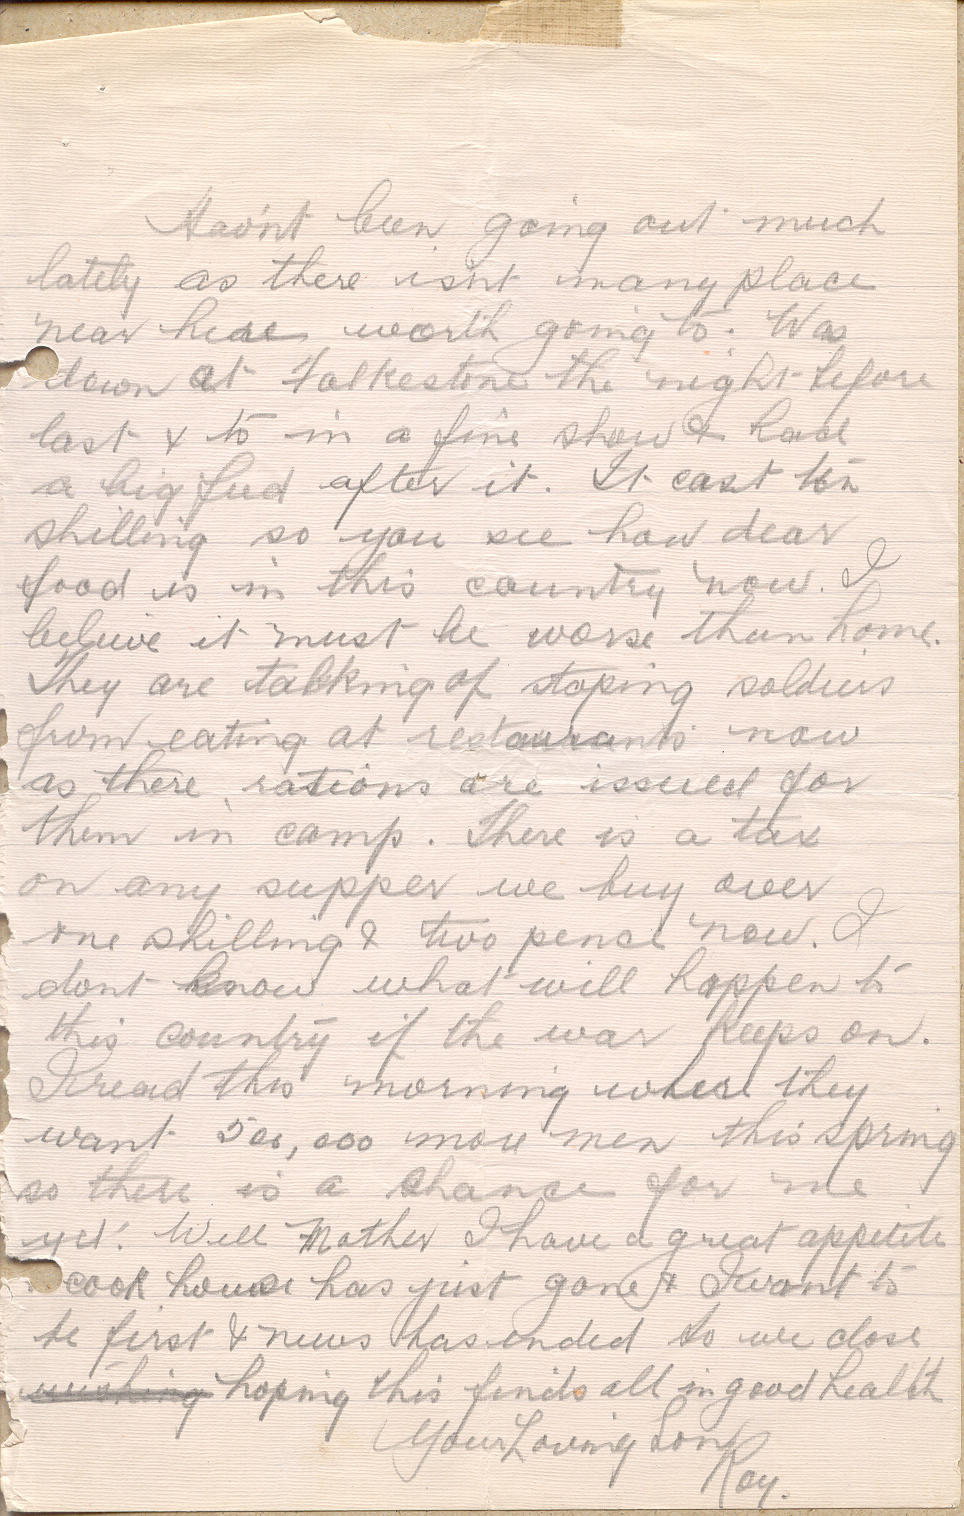 Hav'nt been going out much
lately as there isnt many place
near here worth going to. Was
down at Folkestone the night before
last & to in a fine show & had
a big feed after it. It cost ten
shilling so you see how dear
food is in this country now. I
beleive it must be worse than home.
They are talking of stoping soldiers
from eating at restaurants now
as there rations are issued for
them in camp. There is a tax
on any supper we buy over
one shilling & two pence now. I
dont know what will happen to
this country if the war keeps on.
I read this morning where they
want 500,000 more men this spring
so there is a chance for me
yet. Well Mother I have a great appetite
cook house has just gone & I want to
be first & news has ended so we close
wishing hoping this finds all in good health
Your Loving Son
Roy.